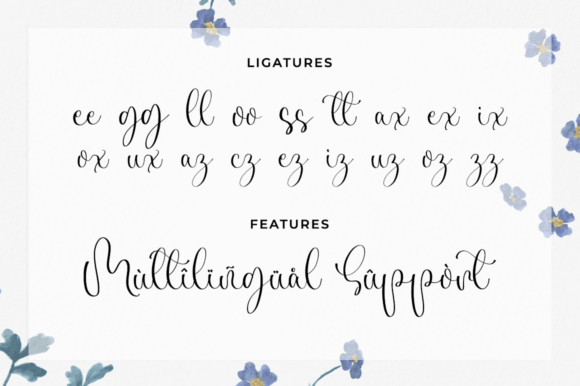 LIGATURES
ee gg ll oo ss tt ax ex ix
ox ux az cz ez iz uz oz zz
FEATURES
Mùltîlïñgüål Sûppòrt